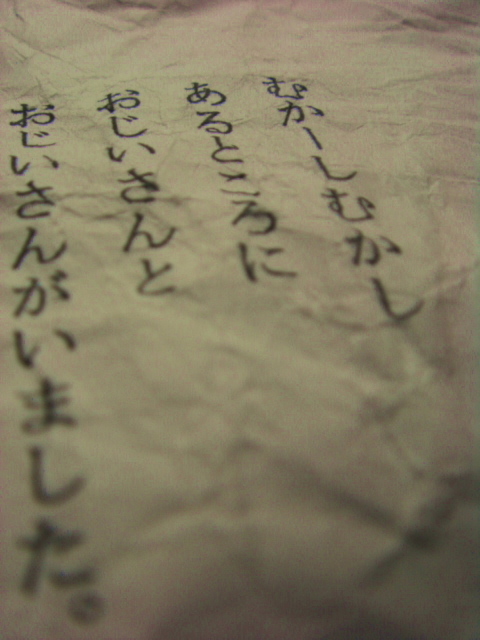 むかーしむかし
あるところに
おじいさんと
おじいさんがいました。